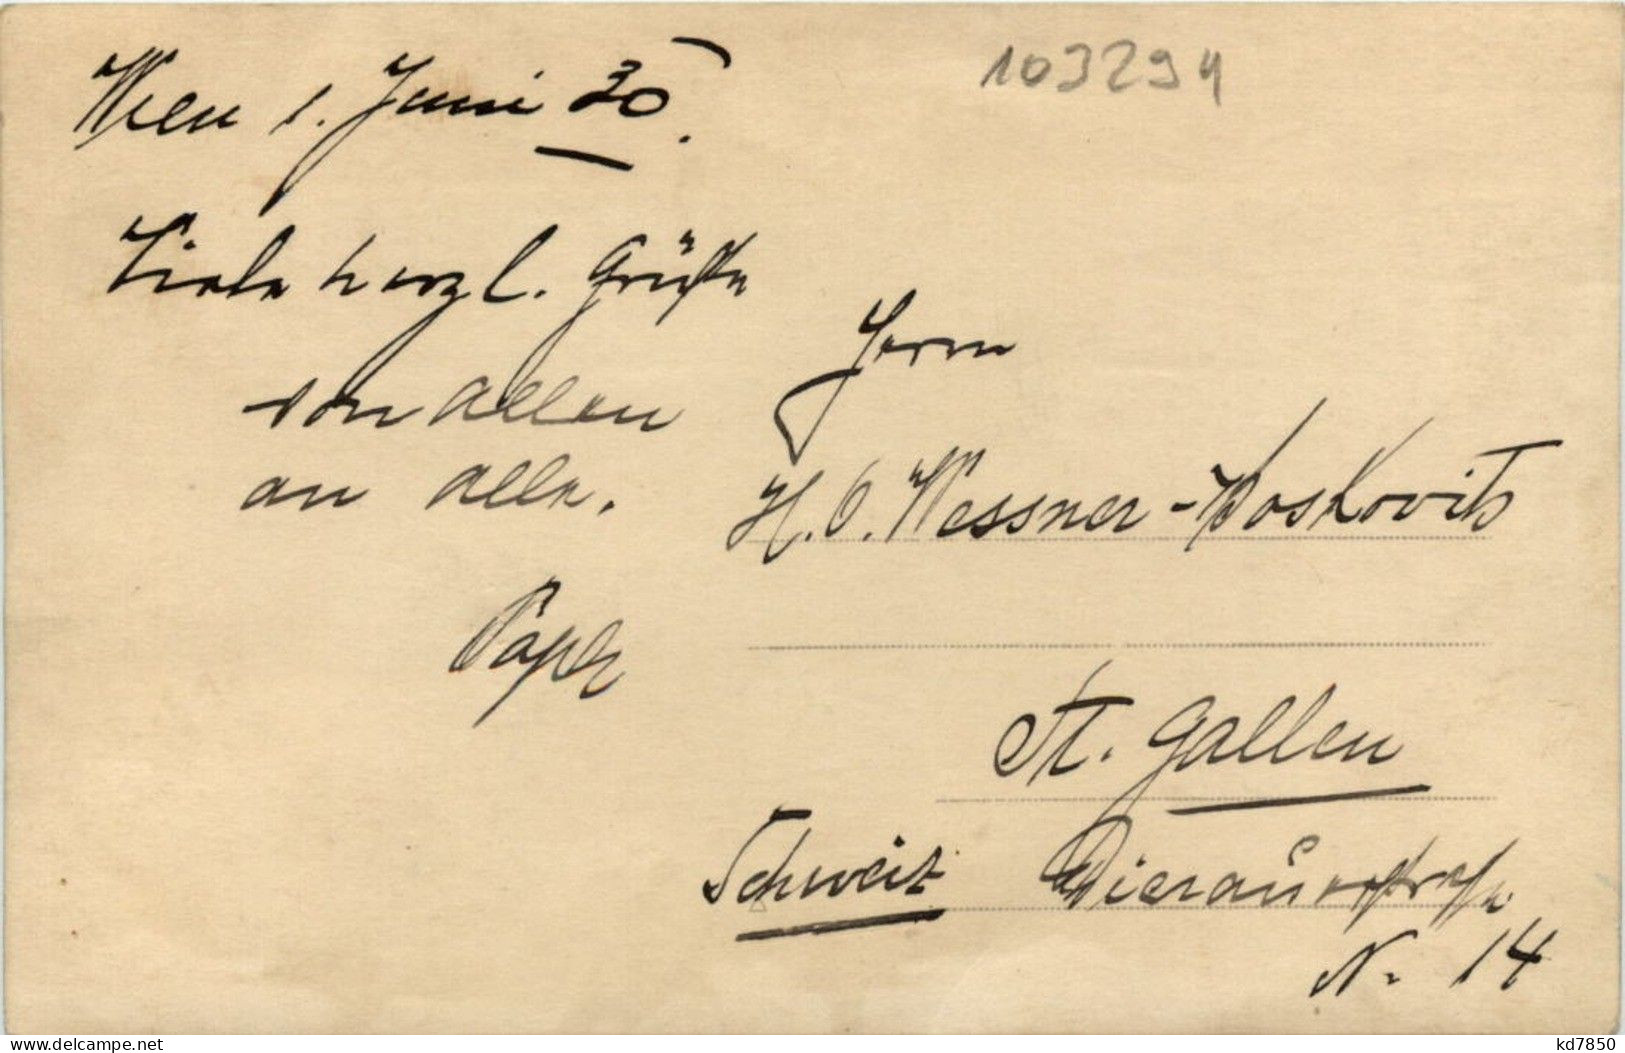 Wien 1. Juni 30.
103294
Viele herzl. Grüße
von allen
an alle.
Herrn
H. O. Wessner-Moskovits
St. Gallen
Schweiz Dierauerstraße
N. 14
delcampe.net
kd7850